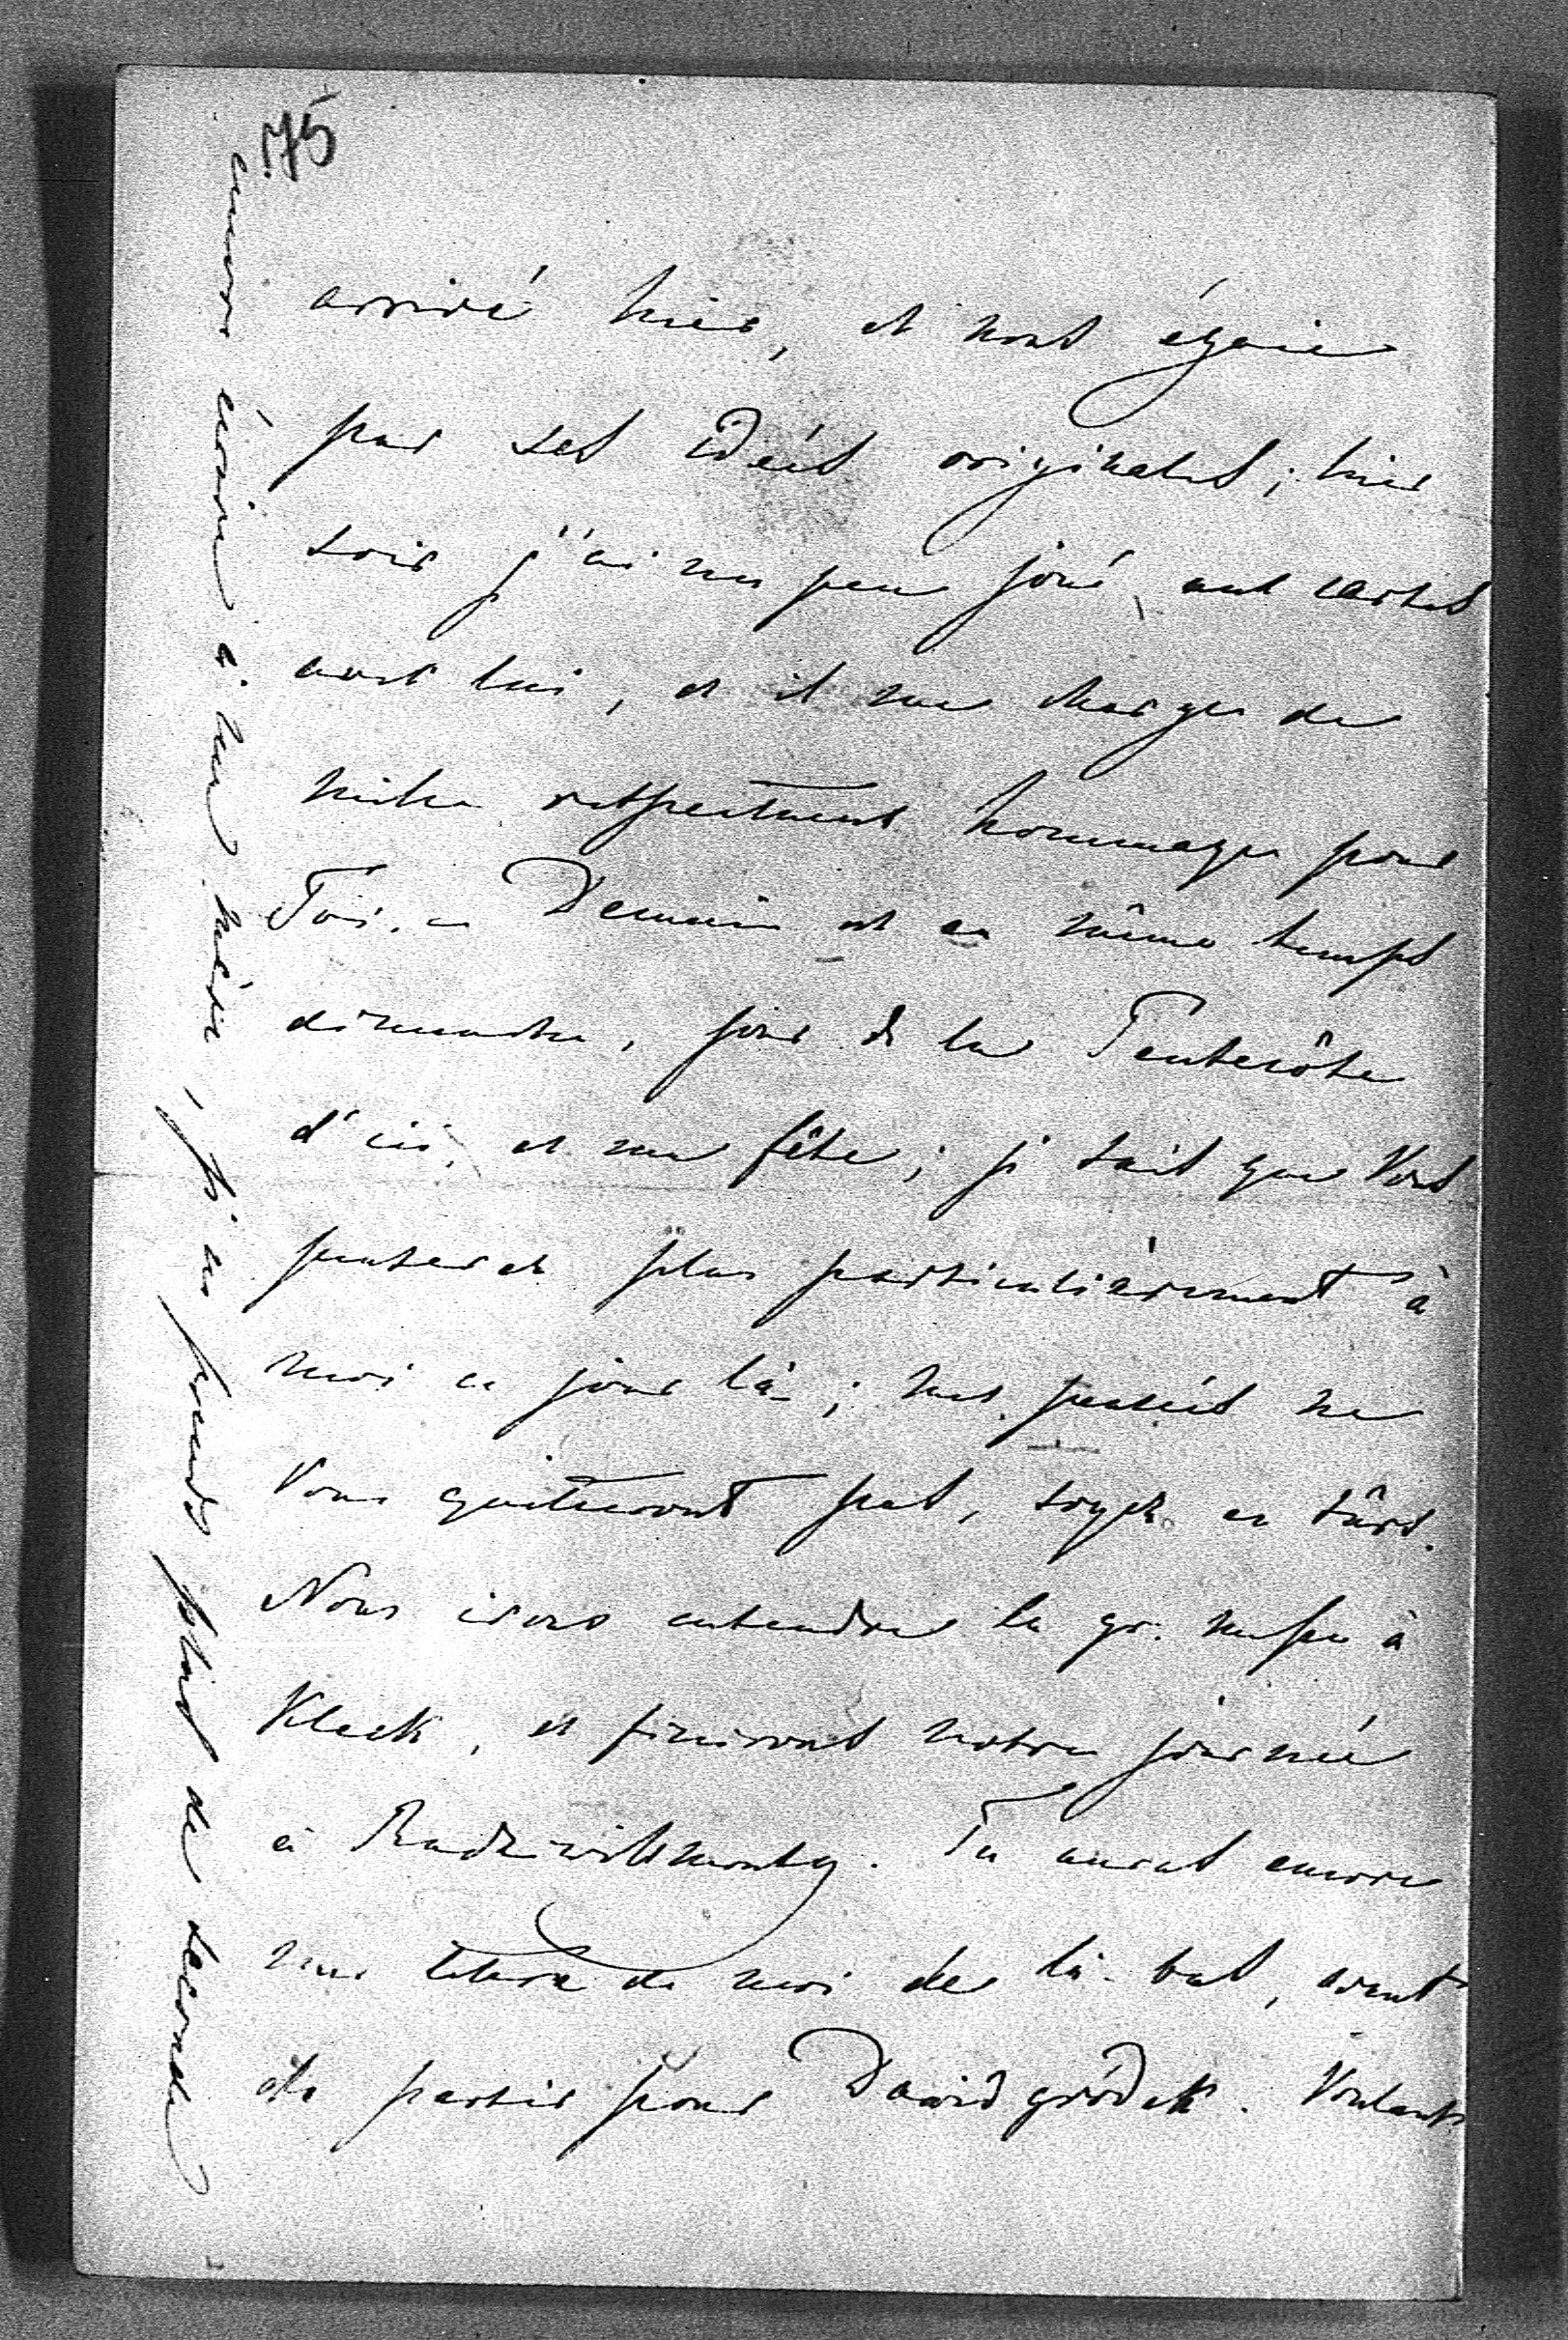 175
arrivé hier, et nous égaie
par ses idées originales; hier
soir j'ai un peu joué aux cartes
avec lui, et il me charge de
mille respectueux hommages pour
Toi. – Demain est en même temps
dimanche, jour de la Pentecôte
d'ici, et ma fête; je sais que Vous
penserez plus particulièrement à
moi ce jour là; mes pensées ne
Vous quitteront pas, soyez en sûrs.
Nous irons entendre la gr. messe à
Kleck, et finirons notre journée
à Radziwillmonty. Tu auras encore
une lettre de moi de là-bas, avant
de partir pour Dawidgródek. Voulant
encore écrire à ma mère, je ne prends plus de seconde